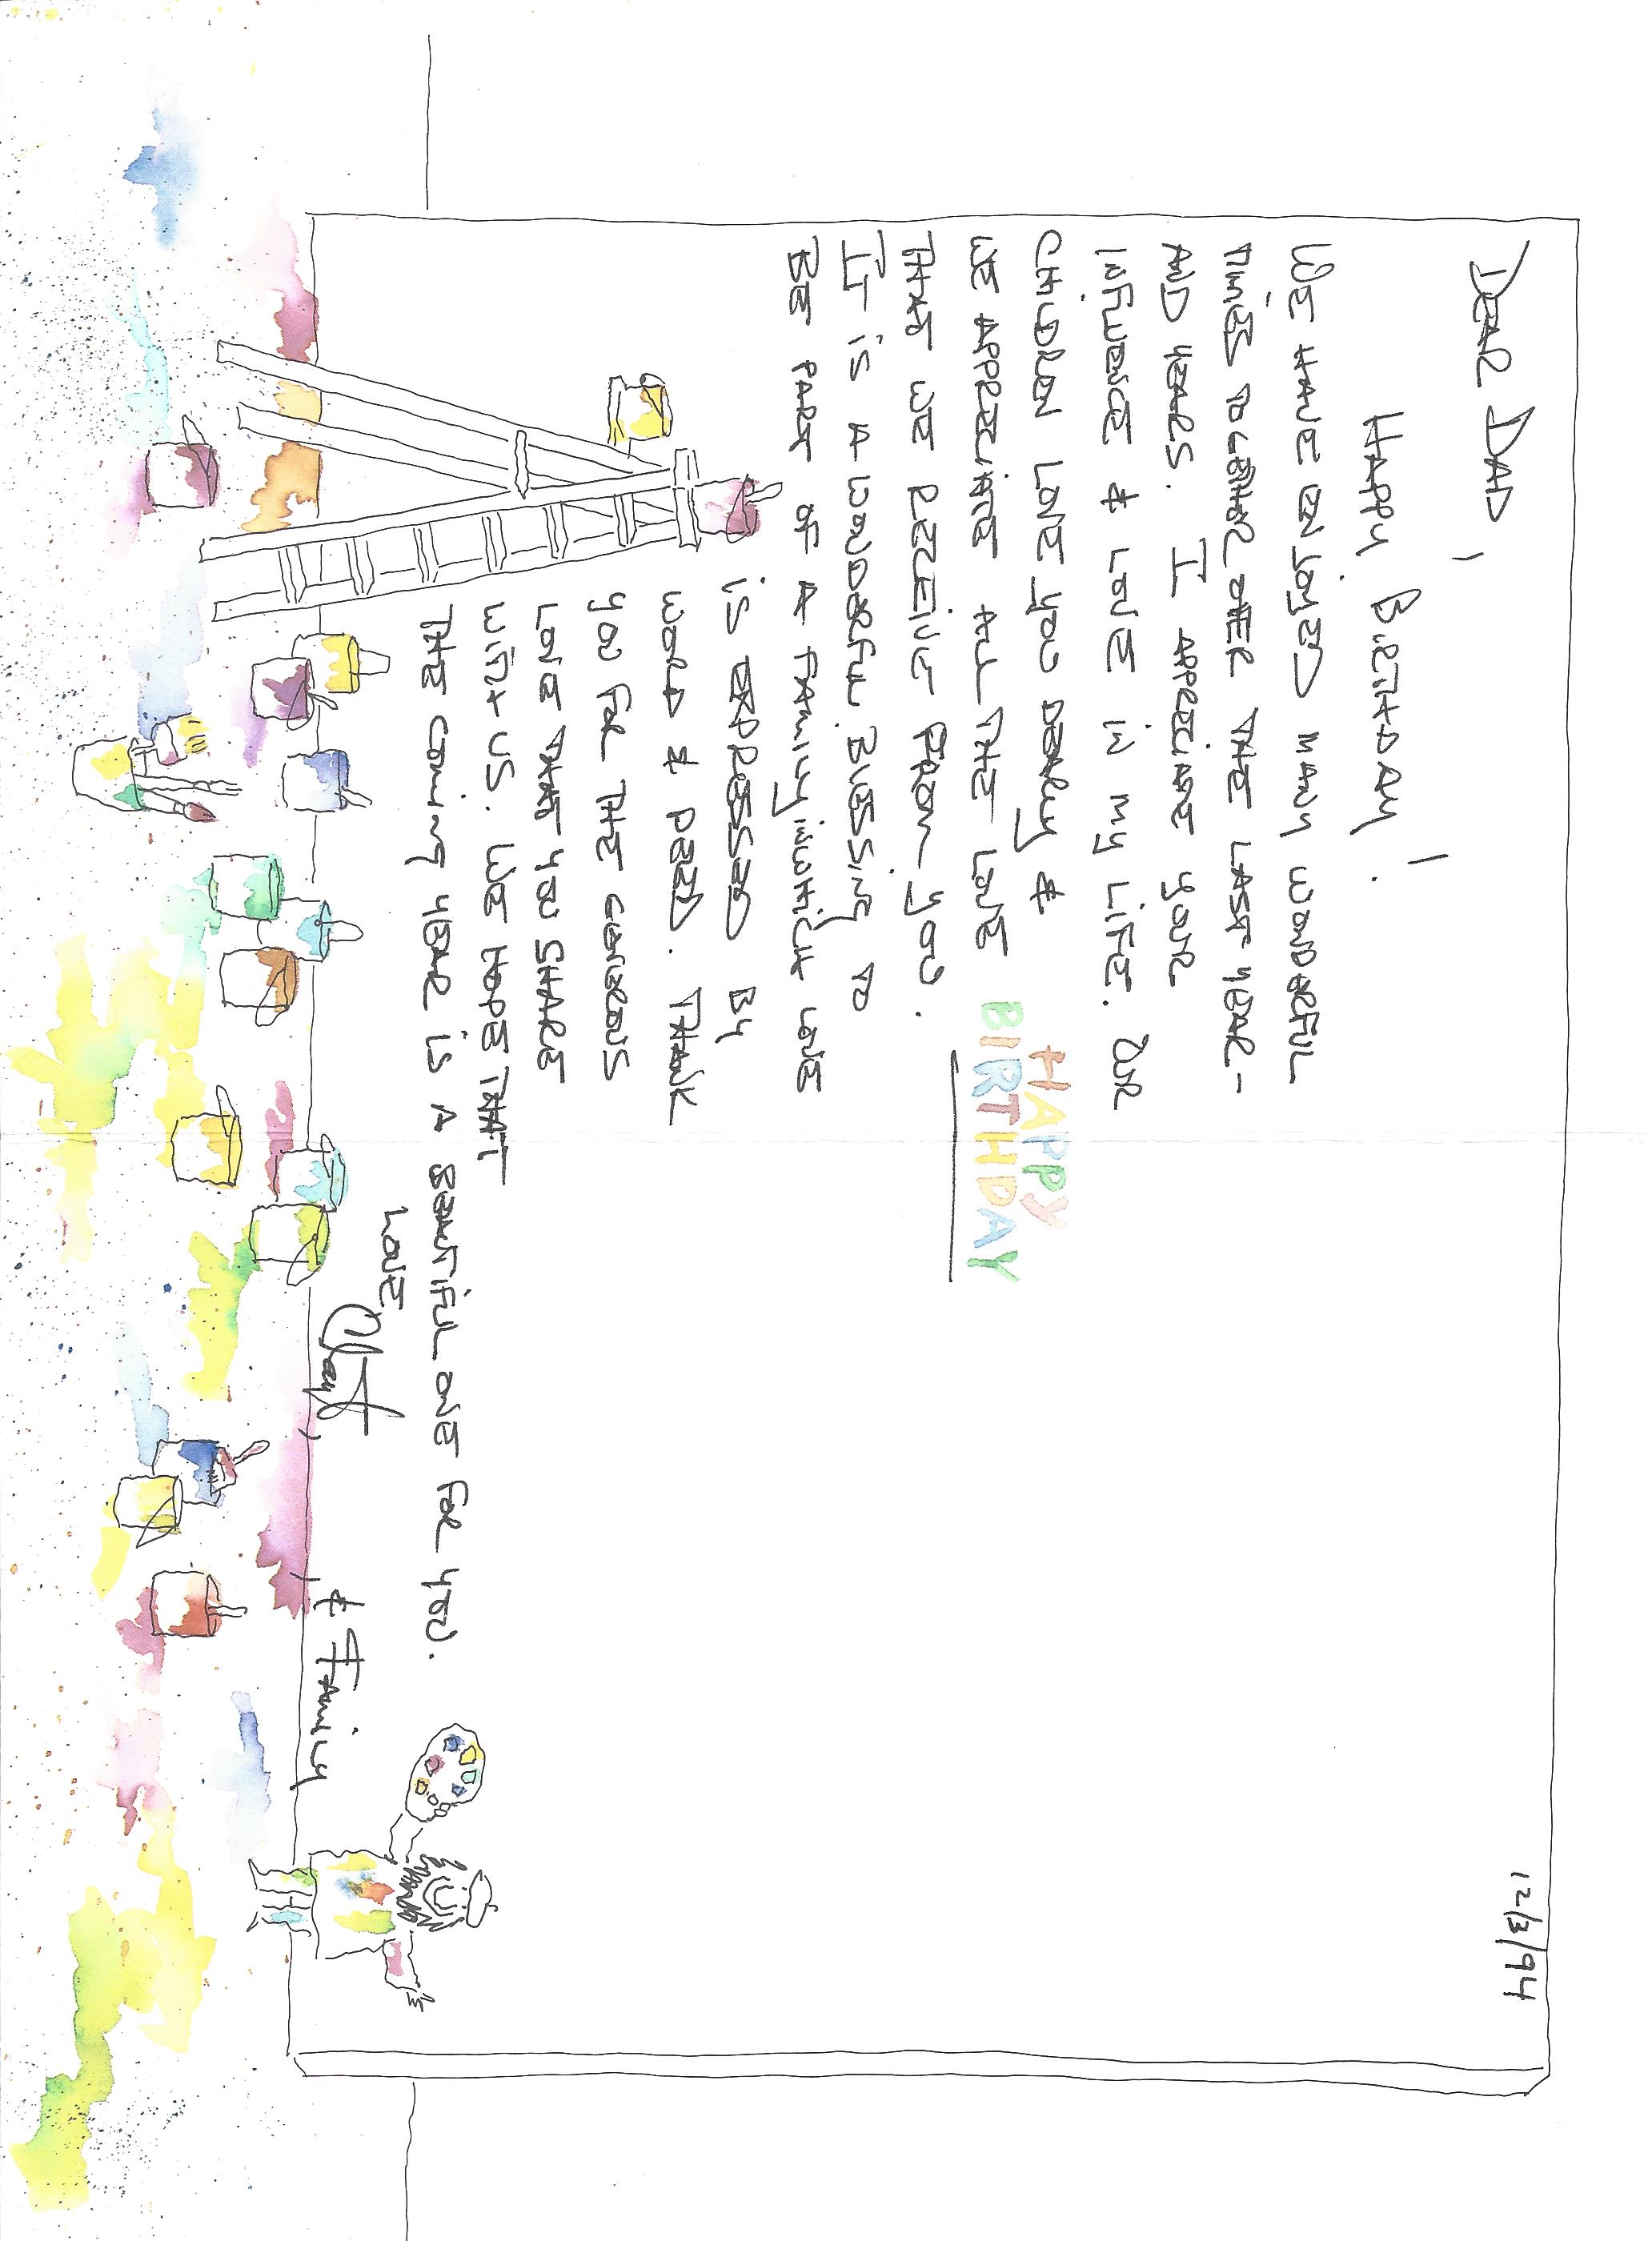 12/3/94
DEAR DAD,
HAPPY BIRTHDAY!
WE HAVE ENJOYED MANY WONDERFUL
TIMES TOGETHER OVER THE LAST YEAR-
AND YEARS. I APPRECIATE YOUR
INFLUENCE & LOVE IN MY LIFE. OUR
CHILDREN LOVE YOU DEARLY &
WE APPRECIATE ALL THE LOVE
THAT WE RECEIVE FROM YOU.
IT IS A WONDERFUL BLESSING TO
BE PART OF A FAMILY IN WHICH LOVE
IS EXPRESSED BY
WORD & DEED. THANK
YOU FOR THE GENEROUS
LOVE THAT YOU SHARE
WITH US. WE HOPE THAT
THE COMING YEAR IS A BEAUTIFUL ONE FOR YOU.
LOVE
, & FAMILY
HAPPY
BIRTHDAY